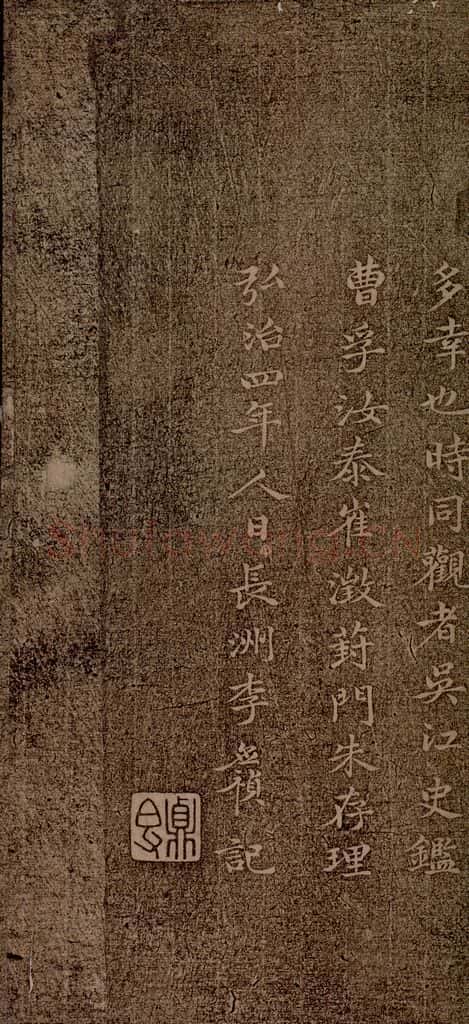 多幸也時同觀者吳江史鑑
曹孚汝泰崔澂葑門朱存理
弘治四年人日長洲李應禎記